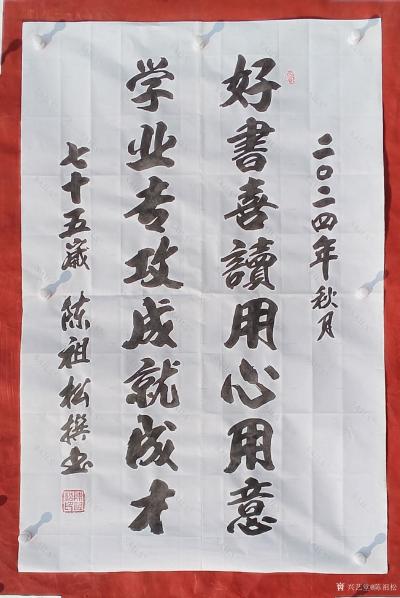 二〇二四年秋月
好書喜讀用心用意
学业专攻成就成才
七十五嵗 陈祖松撰书
兴艺堂@陈祖松